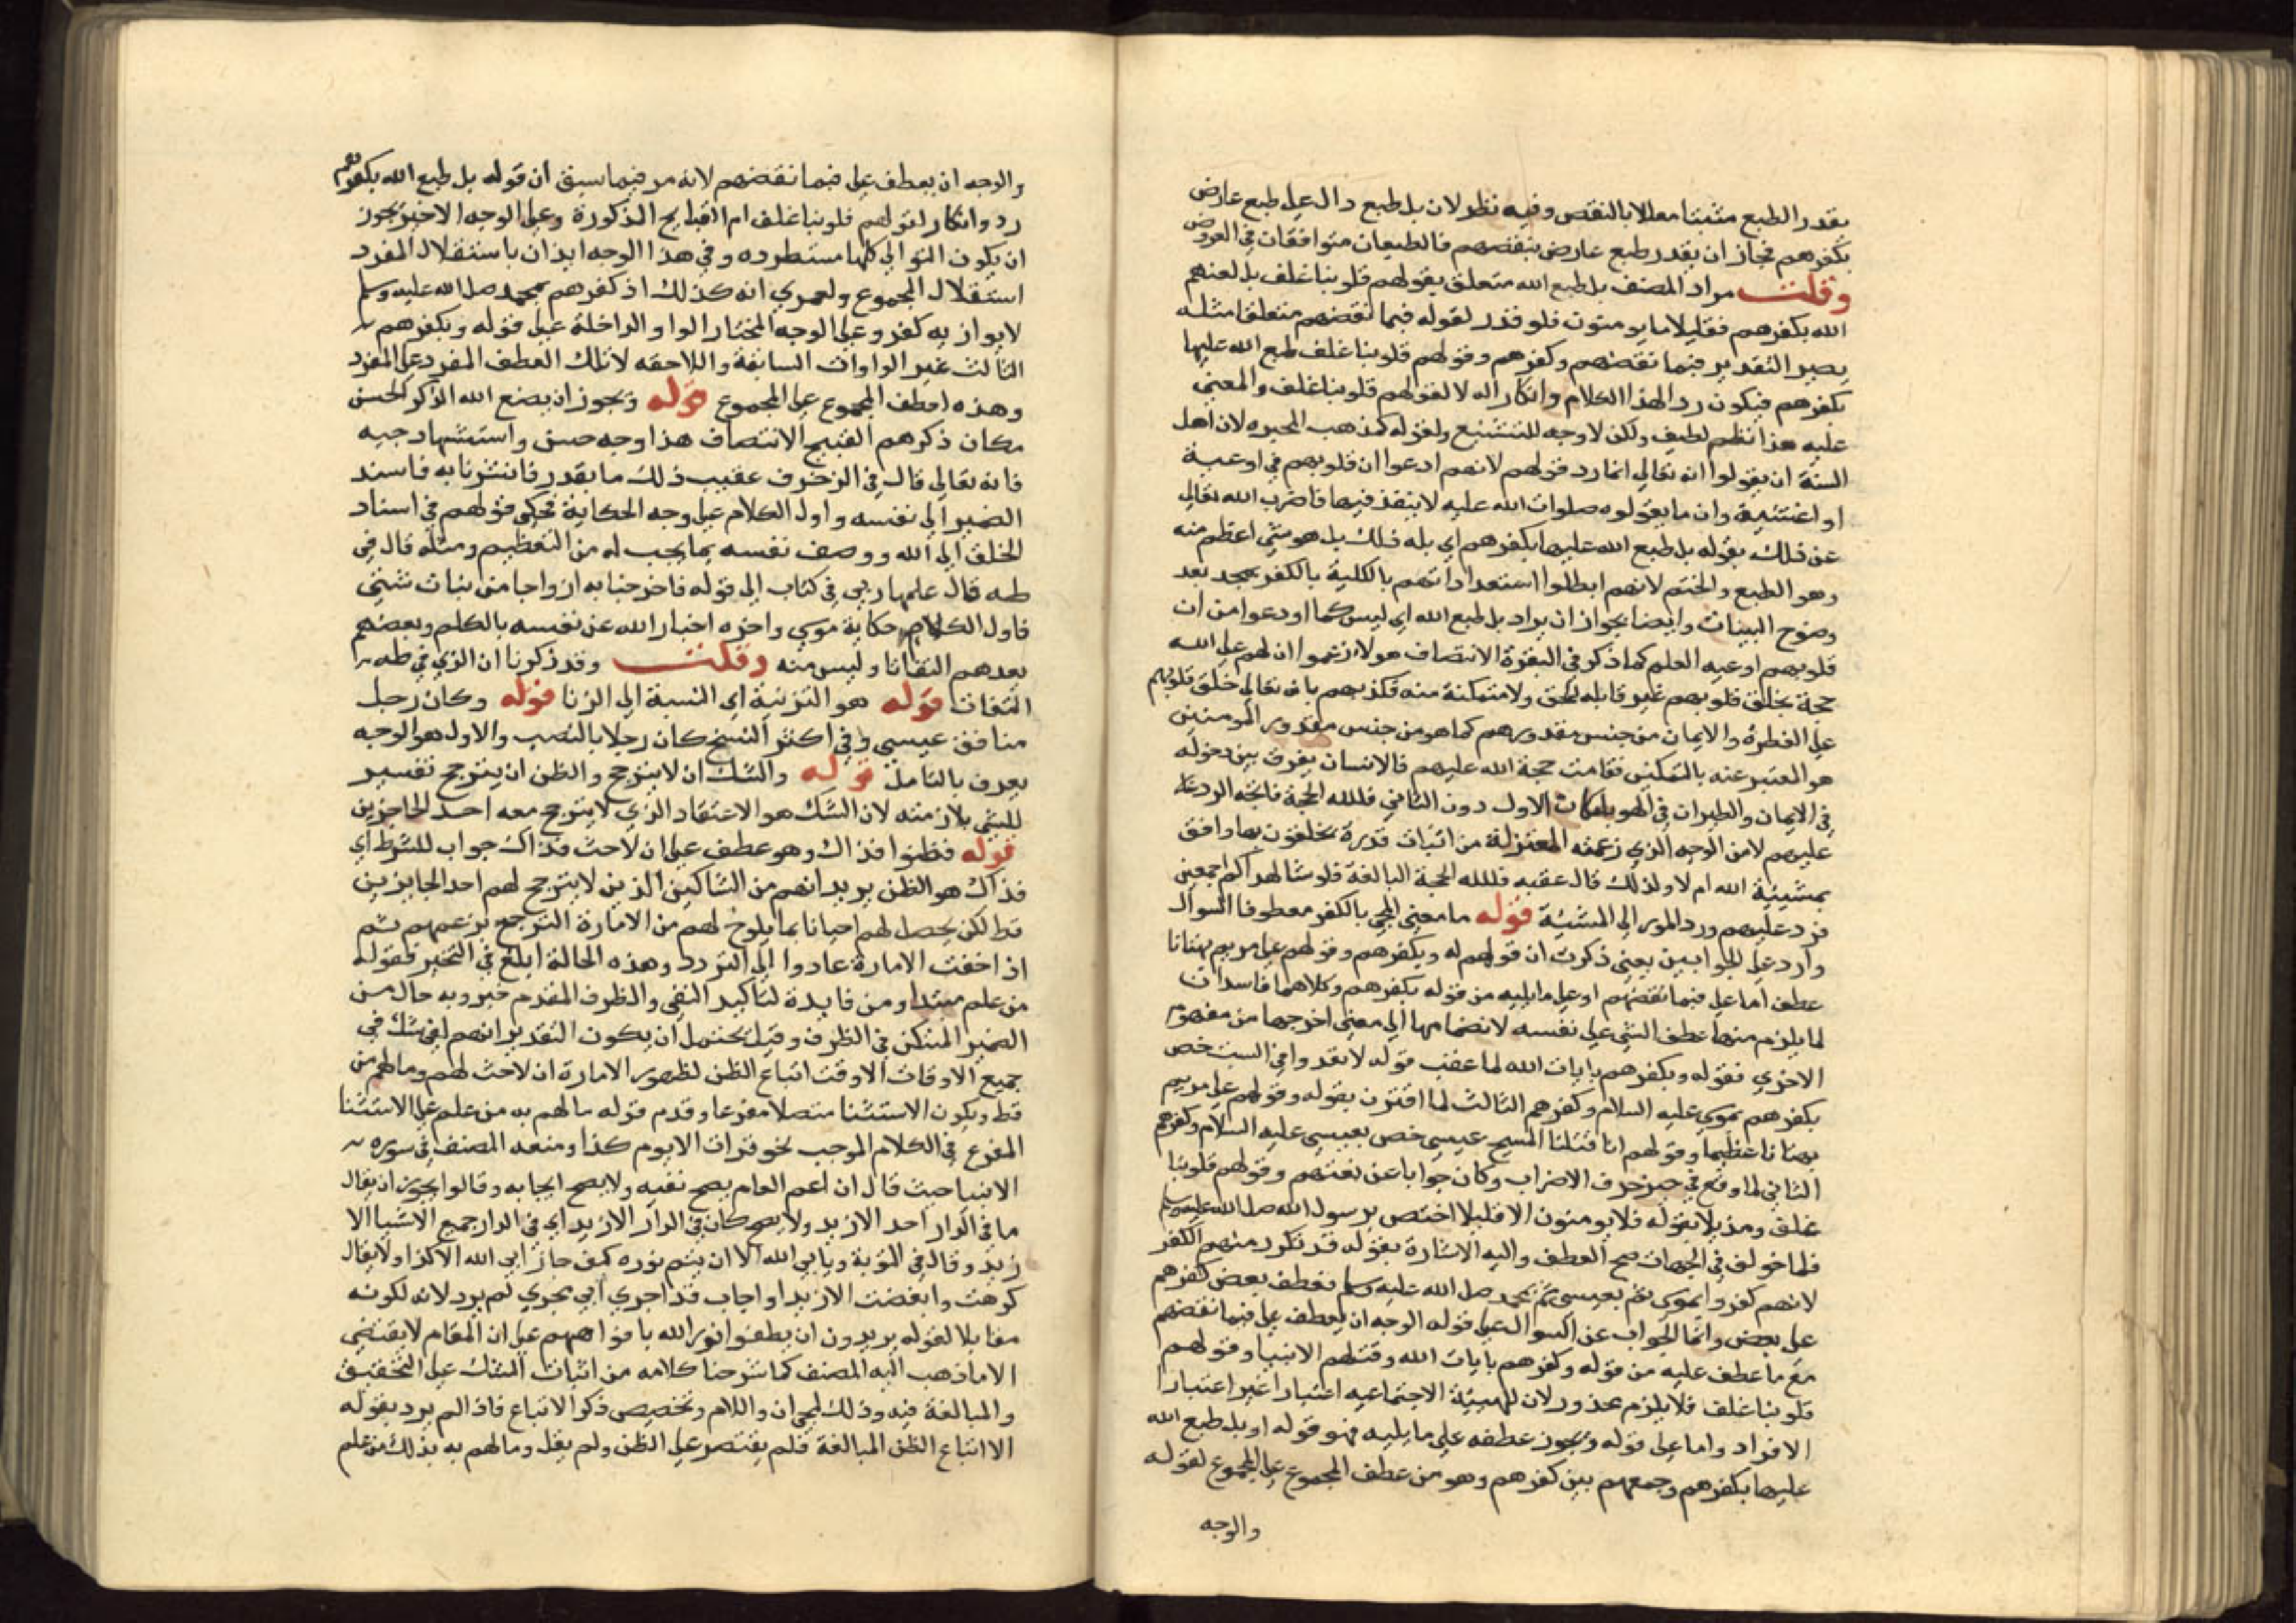 يقدر الطبع مثبتا معللا بالنقص وفيه نظر لان بل طبع دال على طبع عارض
بكفرهم فجاز ان يقدر طبع عارض بنقضهم فالطبعان متوافقان في العروض
وقلت مراد المصنف بل طبع الله متعلق بقولهم قلوبنا غلف بل لعنهم
الله بكفرهم فقليلا ما يومنون فلو قدر لقوله فبما نقضهم متعلقا مثله
يصير التقدير فبما نقضهم وكفرهم وقولهم قلوبنا غلف طبع الله عليها
بكفرهم فيكون رد الهذا الكلام وانكارا له لا لقولهم قلوبنا غلف والمعنى
عليه هذا نظم لطيف ولكن لا وجه للتشنيع ولقوله كمذهب المجبره لان اهل
السنة ان يقولوا انه تعالى انما رد قولهم لانهم ادعوا ان قلوبهم في اوعية
او اغشية وان ما يقولوه صلوات الله عليه لا ينفذ فيها فاضرب الله تعالى
عن ذلك بقوله بل طبع الله عليها بكفرهم اي بله ذلك بل هو شي اعظم منه
وهو الطبع والختم لانهم ابطلوا استعداداتهم بالكلية بالكفر بمحمد بعد
وضوح البينات وايضا يجوز ان يراد بل طبع الله اي ليس كما ادعوا من ان
قلوبهم اوعيه العلم كما ذكر في البقرة الانتصاف هولا زعموا ان لهم على الله
حجة بخلق قلوبهم غير قابله للحق ولا متمكنة منه فكذبهم بانه تعالى خلق قلوبهم
على الفطرة والايمان من جنس مقدورهم كما هو من جنس مقدور المومنين
هو المعبر عنه بالتمكين فقامت حجة الله عليهم فالانسان يفرق بين دخوله
في الايمان والطيران في الهوا بامكان الاول دون الثاني فلله الحجة فاتجه الرد
عليهم لا من الوجه الذي زعمته المعتزلة من اثبات قدرة يخلقون بها وافق
بمشيئة الله ام لا ولذلك قال عقبه فلله الحجة البالغة فلو شا لهداكم اجمعين
فرد عليهم ورد الامر الى المشيئة قوله ما معنى المجي بالكفر معطوفا السوال
وارد على الجوابين يعني ذكرت ان قولهم له وبكفرهم وقولهم على مريم بهتانا
عطف اما على فبما نقضهم او على ما يليه من قوله بكفرهم وكلاهما فاسدان
لما يلزم منها عطف الشي على نفسه لانضمامها الى معنى اخرجها من مفهوم
الاخرى فقوله وبكفرهم بايات الله لما عقب قوله لا تعدوا في السبت خص
بكفرهم بموسى عليه السلام وكفرهم الثالث لما اقترن بقوله وقولهم على مريم
بهتانا عظيما وقولهم انا قتلنا المسيح عيسى خص بعيسى عليه السلام وكفرهم
الثاني لما وقع في حيز حرف الاضراب وكان جوابا عن تعنتهم وقولهم قلوبنا
غلف ومذيلا بقوله فلا يومنون الا قليلا اختص برسول الله صلى الله عليه وسلم
فلما خولف في الجهات صح العطف واليه الاشارة بقوله قد تكرر منهم الكفر
لانهم كفروا بموسى ثم بعيسى ثم بمحمد صلى الله عليه وسلم فعطف بعض كفرهم
على بعض وانما الجواب عن السوال على قوله الوجه ان يعطف على فبما نقضهم
مع ما عطف عليه من قوله وكفرهم بايات الله وقتلهم الانبيا وقولهم
قلوبنا غلف فلا يلزم محذور لان للهيئة الاجتماعيه اعتبارا غير اعتبار
الافراد واما على قوله ويجوز عطفه على ما يليه فهو قوله او بل طبع الله
عليها بكفرهم وجمعهم بين كفرهم وهو من عطف المجموع على المجموع لقوله
والوجه
والوجه ان يعطف على فبما نقضهم لانه مر فيما سبق ان قوله بل طبع الله بكفرهم
رد وانكار لقولهم قلوبنا غلف ام القبايح المذكورة وعلى الوجه الاخير يجوز
ان يكون التوالي كلها مستطرده وفي هذا الوجه ايذان باستقلال المفرد
استقلال المجموع ولعمري انه كذلك اذ كفرهم بمحمد صلى الله عليه وسلم
لا يوازيه كفر وعلى الوجه المختار الواو الداخلة على قوله وبكفرهم
الثالث غير الواوات السابقة واللاحقه لان تلك العطف المفرد على المفرد
وهذه لعطف المجموع على المجموع قوله ويجوز ان يضع الله الذكر الحسن
مكان ذكرهم القبيح الانتصاف هذا وجه حسن واستشهاد جيد
فانه تعالى قال في الزخرف عقيب ذلك ما بقدر فانشرنا به فاسند
الضمير الى نفسه واول الكلام على وجه الحكاية فحكى قولهم في اسناد
الخلق الى الله ووصف نفسه بما يجب له من التعظيم ومثله قال في
طه قال علمها ربي في كتاب الى قوله فاخرجنا به ازواجا من نبات شتى
فاول الكلام حكاية موسى واخره اخبار الله عن نفسه بالكلم وبعضهم
يعدهم التفاتا وليس منه وقلت وقد ذكرنا ان الذي في طه
التفات قوله هو التزنية اي النسبة الى الزنا قوله وكان رجل
منافق عيسى وفي اكثر النسخ كان رجلا بالنصب والاول هو الوجه
يعرف بالتامل قوله والشك ان لا يترجح والظن ان يترجح تفسير
للشي بلازمته لان الشك هو الاعتقاد الذي لا يترجح معه احد الجايزين
قوله فظنوا فذاك وهو عطف على ان لاحت فذاك جواب للشرط اي
فذاك هو الظن يريد انهم من الشاكين الذين لا يترجح لهم احد الجايزين
قط لكن يحصل لهم احيانا بما يلوح لهم من الامارة الترجح بزعمهم ثم
اذا خفت الامارة عادوا الى التردد وهذه الحالة ابلغ في التحير فقوله
من علم مبتدا ومن فايدة لتاكيد النفي والظرف المقدم خبر وبه حال من
الضمير المتمكن في الظرف وقيل يحتمل ان يكون التقدير انهم لفي شك في
جميع الاوقات الا وقت اتباع الظن لظهور الامارة ان لاحت لهم وما لهم من
قط ويكون الاستثنا متصلا مفرغا وقدم قوله مالهم به من علم على الاستثنا
المفرغ في الكلام الموجب نحو قرات الا يوم كذا ومنعه المصنف في سوره
الانبيا حيث قال ان اعم العام يصح نفيه ولا يصح ايجابه وقالوا يجوز ان يقال
ما في الدار احد الا زيد ولا يصح كان في الدار الا زيد اي في الدار جميع الاشيا الا
زيد وقال في التوبة ويابى الله الا ان يتم نوره كيف جاز ابى الله الا كذا ولا يقال
كرهت وابغضت الا زيدا واجاب قد اجرى ابى مجرى لم يرد لانه لكونه
مقابلا لقوله يريدون ان يطفئوا نور الله بافواههم على ان المقام لا يقتضي
الا ما ذهب اليه المصنف كما شرحنا كلامه من اثبات الشك على التحقيق
والمبالغة فيه وذلك لمجي ان واللام وتخصيص ذكر الاتباع فاذا لم يرد بقوله
الا اتباع الظن المبالغة فلم يقتصر على الظن ولم يقل وما لهم به بذلك من علم